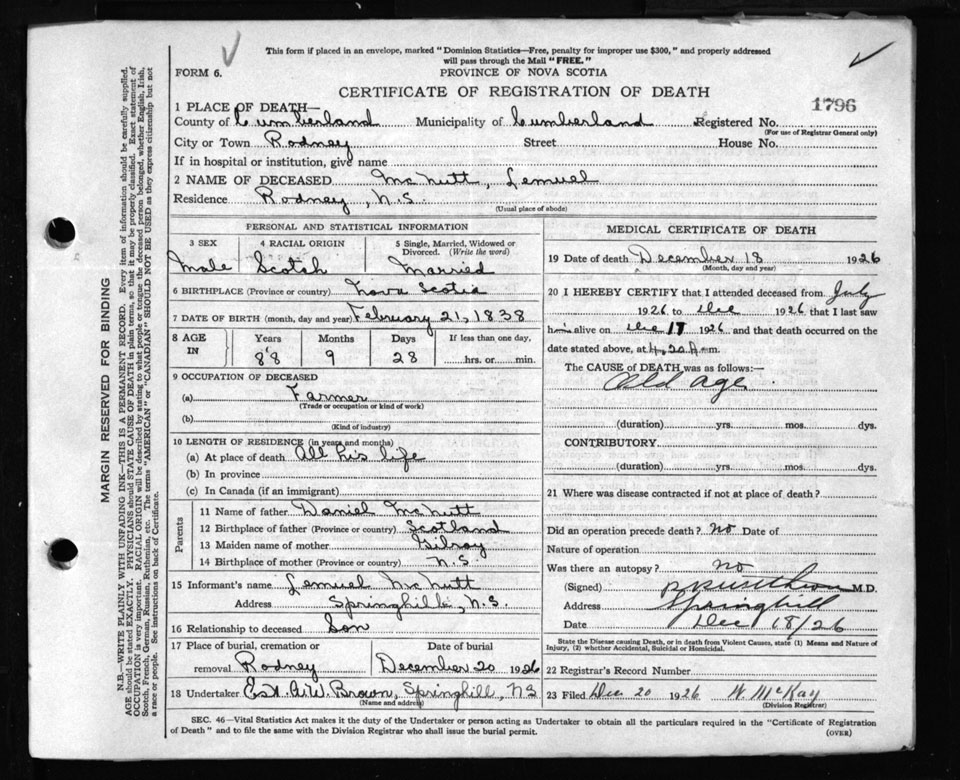 This form if placed in an envelope, marked "Dominion Statistics—Free, penalty for improper use $300," and properly addressed
will pass through the Mail "FREE."
FORM 6.
PROVINCE OF NOVA SCOTIA
CERTIFICATE OF REGISTRATION OF DEATH
1796
1 PLACE OF DEATH—
County of Cumberland Municipality of Cumberland Registered No.
(For use of Registrar General only)
City or Town Rodney Street House No.
If in hospital or institution, give name
2 NAME OF DECEASED McNutt, Lemuel
Residence Rodney, N.S.
(Usual place of abode)
PERSONAL AND STATISTICAL INFORMATION
3 SEX 4 RACIAL ORIGIN 5 Single, Married, Widowed or
Divorced. (Write the word)
Male Scotch Married
6 BIRTHPLACE (Province or country) Nova Scotia
7 DATE OF BIRTH (month, day and year) February 21, 1838
8 AGE
IN
Years Months Days If less than one day,
88 9 28 hrs. or min.
9 OCCUPATION OF DECEASED
(a) Farmer
(Trade or occupation or kind of work)
(b)
(Kind of industry)
10 LENGTH OF RESIDENCE (in years and months)
(a) At place of death All his life
(b) In province
(c) In Canada (if an immigrant)
Parents
11 Name of father Daniel McNutt
12 Birthplace of father (Province or country) Scotland
13 Maiden name of mother Gilroy
14 Birthplace of mother (Province or country) N.S.
15 Informant's name Lemuel McNutt
Address Springhill, N.S.
16 Relationship to deceased Son
17 Place of burial, cremation or Date of burial
removal Rodney December 20 1926
18 Undertaker Est. A.W. Brown, Springhill, N.S
(Name and address)
MEDICAL CERTIFICATE OF DEATH
19 Date of death December 18 1926
(Month, day and year)
20 I HEREBY CERTIFY that I attended deceased from July
1926 to Dec 1926 that I last saw
him alive on Dec 17 1926 and that death occurred on the
date stated above, at 4.20 A.m.
The CAUSE OF DEATH was as follows:—
Old age
(duration) yrs. mos. dys.
CONTRIBUTORY
(duration) yrs. mos. dys.
21 Where was disease contracted if not at place of death?
Did an operation precede death? No Date of
Nature of operation
Was there an autopsy? No
(Signed) M.D.
Address Springhill
Date Dec 18/26
State the Disease causing Death, or in death from Violent Causes, state (1) Means and Nature of
Injury, (2) whether Accidental, Suicidal or Homicidal.
22 Registrar's Record Number
23 Filed Dec 20 1926 W. McKay
(Division Registrar)
SEC. 46—Vital Statistics Act makes it the duty of the Undertaker or person acting as Undertaker to obtain all the particulars required in the "Certificate of Registration
of Death" and to file the same with the Division Registrar who shall issue the burial permit.
(OVER)
MARGIN RESERVED FOR BINDING
N.B.—WRITE PLAINLY WITH UNFADING INK—THIS IS A PERMANENT RECORD. Every item of information should be carefully supplied.
AGE should be stated EXACTLY. PHYSICIANS should STATE CAUSE OF DEATH in plain terms, so that it may be properly classified. Exact statement of
OCCUPATION is very important. RACIAL ORIGIN will be described by stating to what people or tongue the deceased person belonged, whether English, Irish,
Scotch, French, German, Russian, Ruthenian, etc. The terms "AMERICAN" or "CANADIAN" SHOULD NOT BE USED as they express citizenship but not
a race or people. See instructions on back of Certificate.